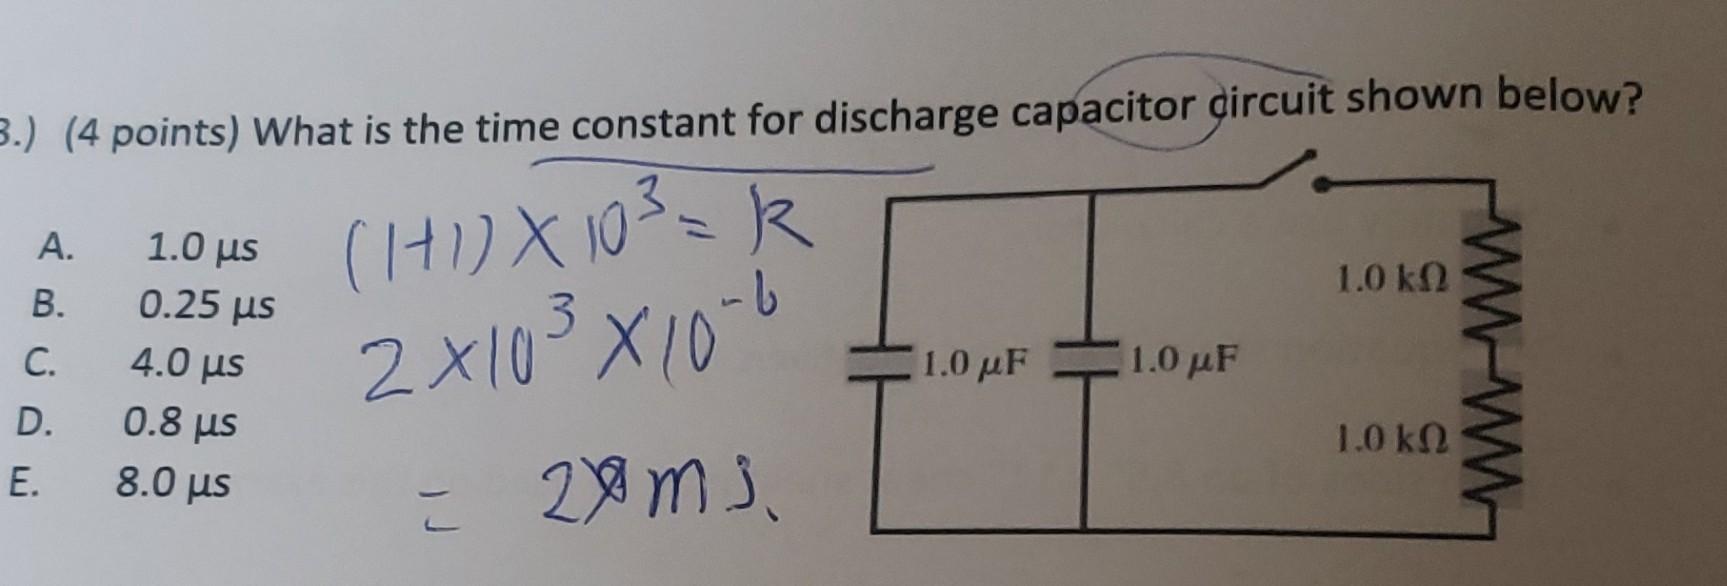 3.) (4 points) What is the time constant for discharge capacitor circuit shown below?
A. 1.0 μs
B. 0.25 μs
C. 4.0 μs
D. 0.8 μs
E. 8.0 μs
(1+1) × 10³ = R
2 × 10³ × 10⁻⁶
= 2 ms.
1.0 μF
1.0 μF
1.0 kΩ
1.0 kΩ